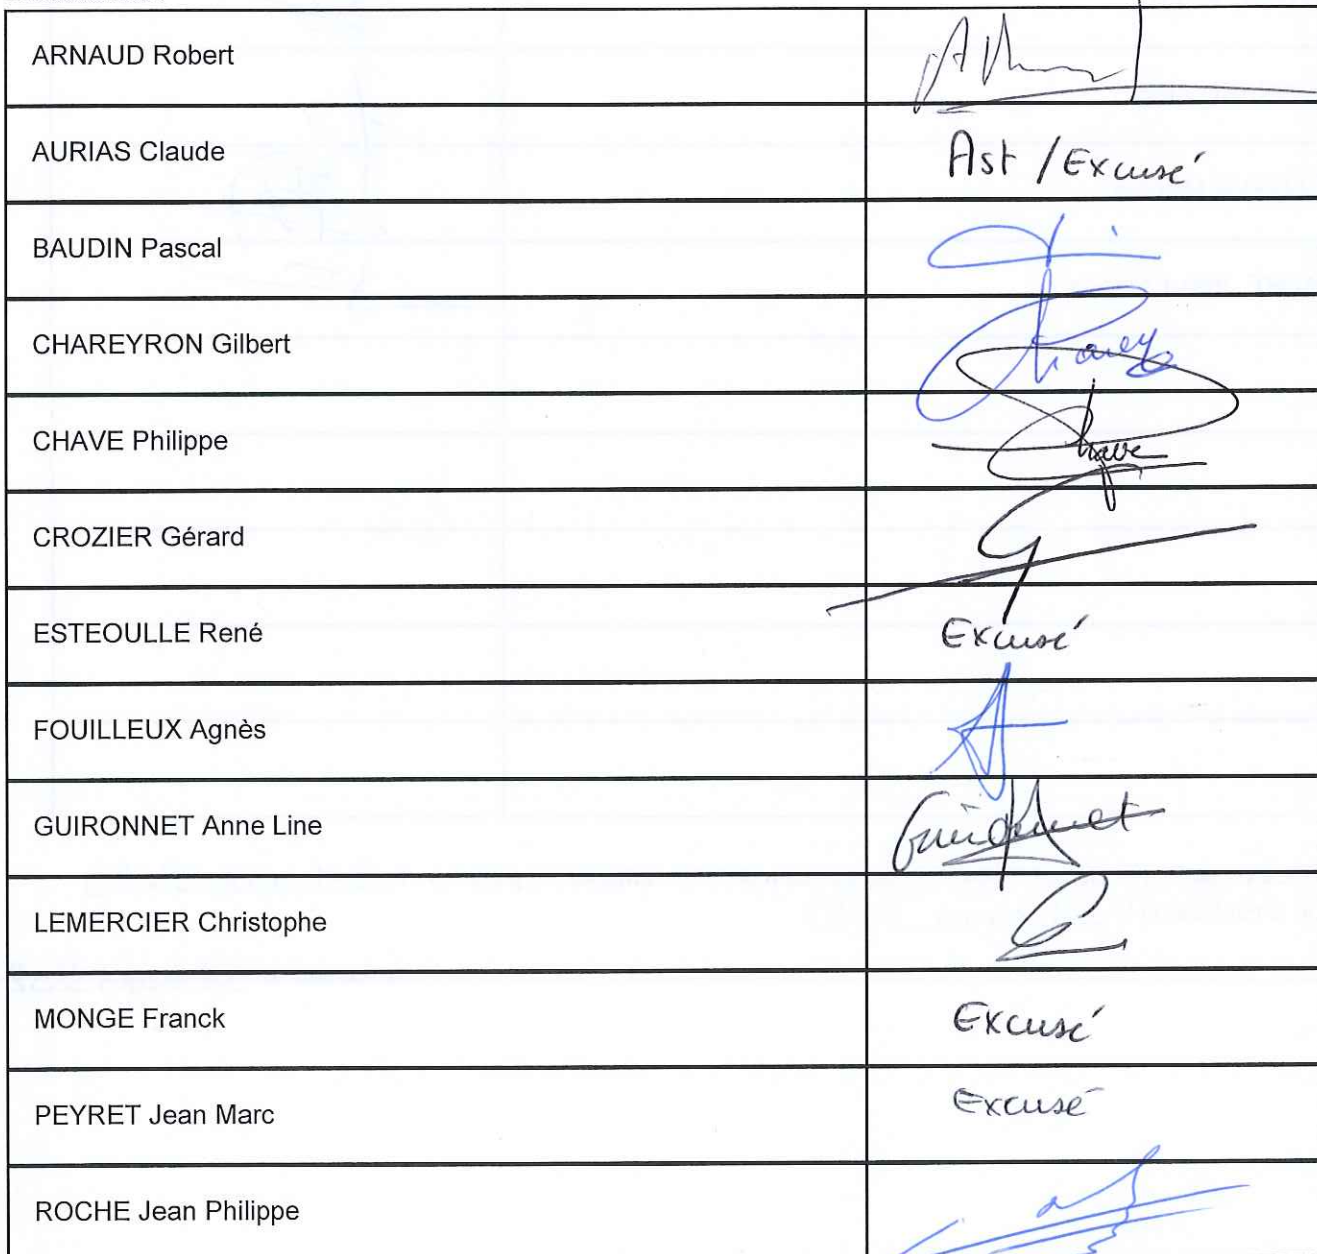 ARNAUD Robert
AURIAS Claude
Ast / Excusé
BAUDIN Pascal
CHAREYRON Gilbert
Charey
CHAVE Philippe
Chave
CROZIER Gérard
ESTEOULLE René
Excusé
FOUILLEUX Agnès
GUIRONNET Anne Line
Guironnet
LEMERCIER Christophe
MONGE Franck
Excusé
PEYRET Jean Marc
Excusé
ROCHE Jean Philippe